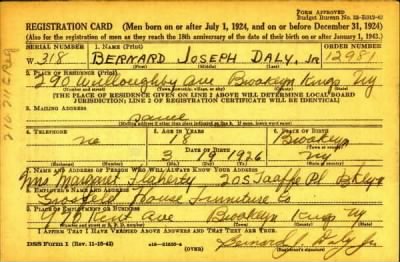 FORM APPROVED
Budget Bureau No.
REGISTRATION CARD (Men born on or after July 1, 1924, and on or before December 31, 1924)
(Also for the registration of men as they reach the 18th anniversary of the date of their birth on or after January 1, 1943.)
SERIAL NUMBER 1. NAME (Print) ORDER NUMBER
W. 318 BERNARD JOSEPH DALY, Jr 12981
(First) (Middle) (Last)
2. PLACE OF RESIDENCE (Print)
290 Willoughby Ave Brooklyn Kings Ny
(THE PLACE OF RESIDENCE GIVEN ON LINE 2 ABOVE WILL DETERMINE LOCAL BOARD
JURISDICTION; LINE 2 OF REGISTRATION CERTIFICATE WILL BE IDENTICAL)
3. MAILING ADDRESS
Same
4. TELEPHONE 5. AGE IN YEARS 6. PLACE OF BIRTH
no 18 Brooklyn
DATE OF BIRTH
3 1926 Ny
7. NAME AND ADDRESS OF PERSON WHO WILL ALWAYS KNOW YOUR ADDRESS
Mrs Margaret Flaherty 205 Taaffe Pl Bklyn
8. EMPLOYER'S NAME AND ADDRESS
House Furniture Co
9. PLACE OF EMPLOYMENT OR BUSINESS
Kent Ave Brooklyn Kings Ny
I AFFIRM THAT I HAVE VERIFIED ABOVE ANSWERS AND THAT THEY ARE TRUE.
DSS Form 1 (Rev. 11-16-42) (OVER) Bernard J. Daly Jr.